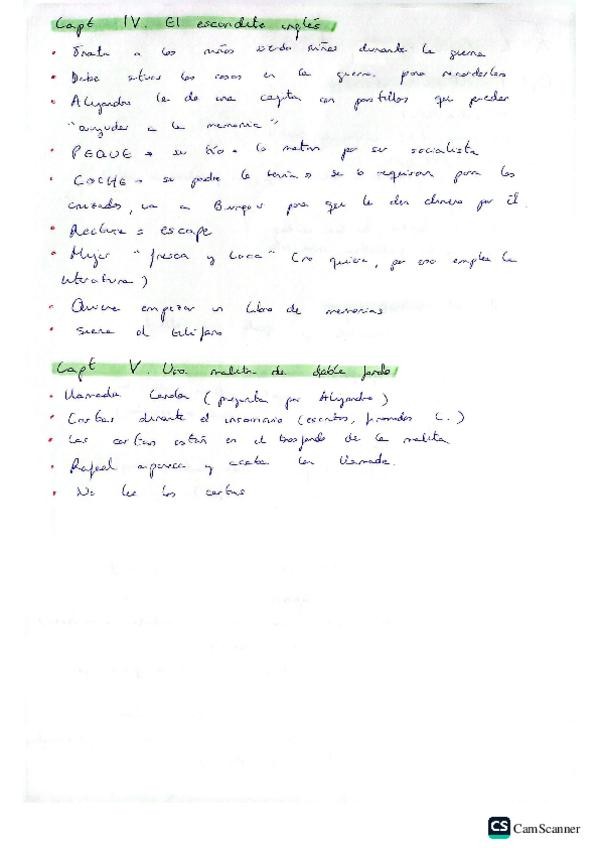 Capt IV. El escondite inglés
• Trata a los niños siendo niños durante la guerra
• Debe situar las cosas en la guerra para recordarlas
• Alejandro le da una cajita con pastillas que pueden
"ayudar a la memoria"
• PEQUE → su tío = lo matan por ser socialista
• COCHE → su padre lo tenía se lo requisan para los
cruzados, va a Burgos para que le den dinero por él
• = escape
• Mujer "fresca y loca" (lo quiere, por eso emplea la
literatura)
• Quiere empezar un libro de memorias
• Suena el teléfono
Capt V. Una maleta de doble fondo
• Llamada Carola (pregunta por Alejandro)
• Cartas durante el insomnio (escritos, firmados C.)
• Las cartas están en el trasfondo de la maleta
• Rafael aparece y acaba la llamada.
• No lee las cartas
CS CamScanner